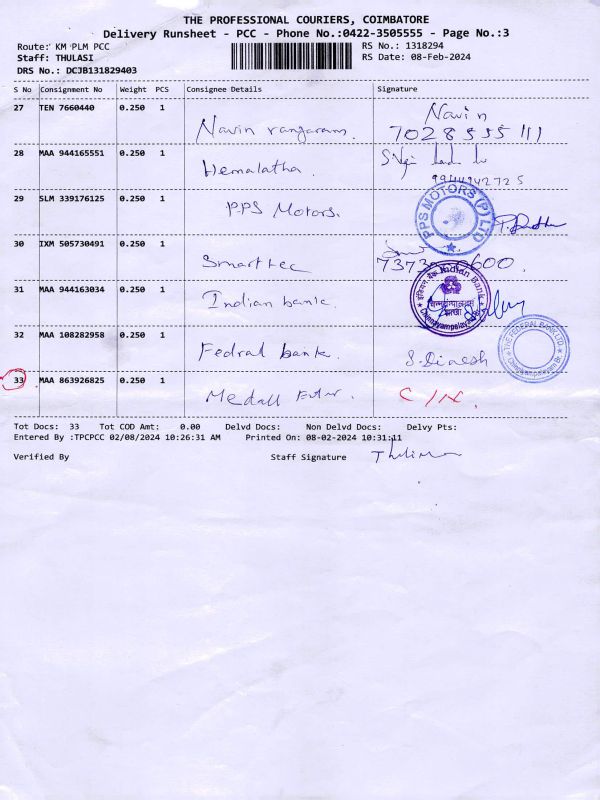 THE PROFESSIONAL COURIERS, COIMBATORE
Delivery Runsheet - PCC - Phone No.:0422-3505555 - Page No.:3
Route: KM PLM PCC RS No.: 1318294
Staff: THULASI RS Date: 08-Feb-2024
DRS No.: DCJB131829403
S No Consignment No Weight PCS Consignee Details Signature
27 TEN 7660440 0.250 1 Navin rangaram. Navin
7028535111
28 MAA 944165551 0.250 1 Hemalatha.
29 SLM 339176125 0.250 1 PPS Motors. PPS MOTORS (P) LTD
30 IXM 505730491 0.250 1 Smarttec
31 MAA 944163034 0.250 1 Indian bank. Indian Bank
32 MAA 108282958 0.250 1 Fedral bank. S. Dinesh THE FEDERAL BANK LTD
33 MAA 863926825 0.250 1 Medall
Tot Docs: 33 Tot COD Amt: 0.00 Delvd Docs: Non Delvd Docs: Delvy Pts:
Entered By :TPCPCC 02/08/2024 10:26:31 AM Printed On: 08-02-2024 10:31:11
Verified By Staff Signature